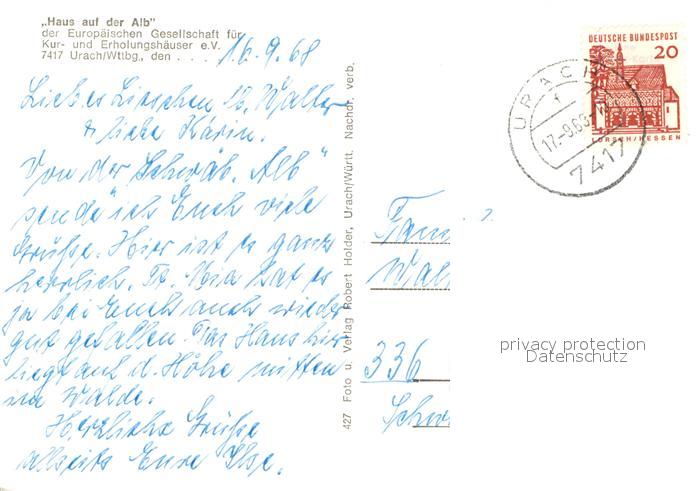 „Haus auf der Alb"
der Europäischen Gesellschaft für
Kur- und Erholungshäuser e.V.
7417 Urach/Wttbg., den . . . 16.9.68
Liebes Lieschen lb. Walter
& liebe Karin.
Von der Schwäb. Alb"
sende ich Euch viele
Grüsse. Hier ist es ganz
herrlich. hat es
ja bei Euch auch wieder
gut gefallen. Das Haus hier
liegt auf d. Höhe mitten
im Walde.
Herzliche Grüsse
allseits Eure Ilse.
427 Foto u. Verlag Robert Holder, Urach/Württ. Nachdr. verb.
DEUTSCHE BUNDESPOST
20
LORSCH/HESSEN
URACH
1
17.-9.68
7417
Fam
Wal
336
Schw
privacy protection
Datenschutz